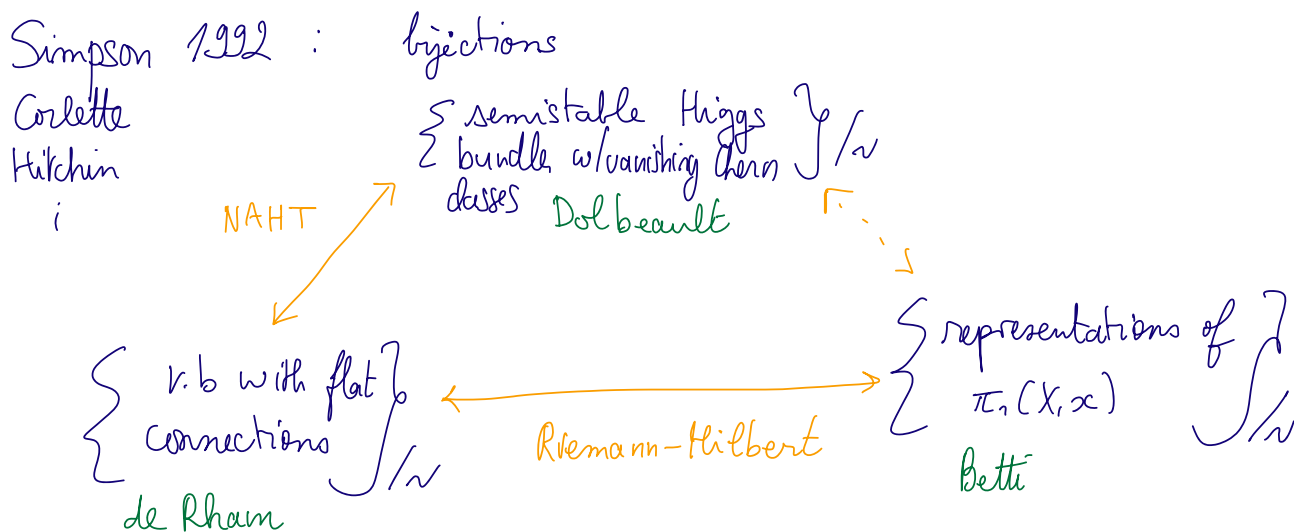 Simpson 1992 : bijections
Corlette
Hitchin
{ semistable Higgs
bundle w/vanishing Chern
classes } /~
Dolbeault
NAHT
{ v.b with flat
connections } /~
de Rham
Riemann-Hilbert
{ representations of
π₁(X,x) } /~
Betti